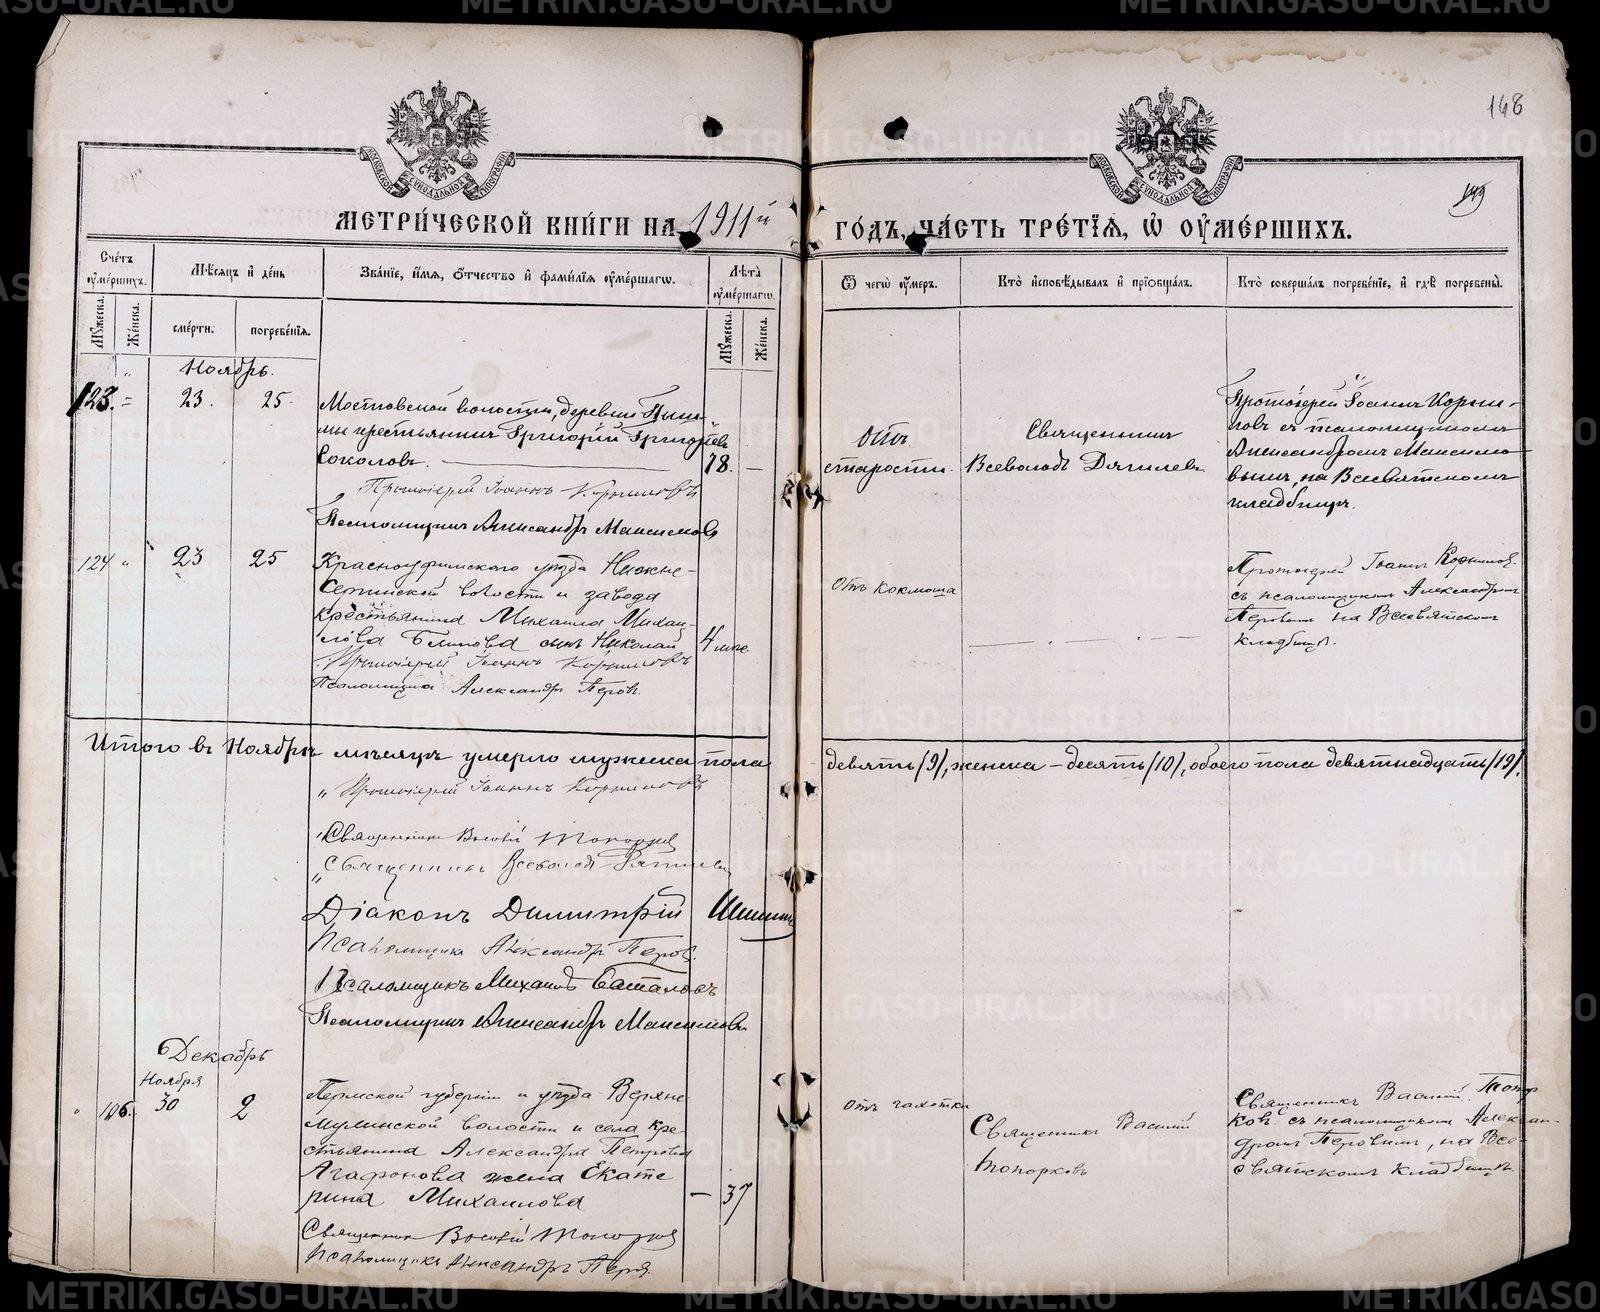 148
149
МЕТРИ́ЧЕСКОЙ КНИ́ГИ НА 1911й ГО́ДЪ, ЧА́СТЬ ТРЕ́ТІЯ, Ѡ ОУМЕ́РШИХЪ.
Сче́тъ оуме́ршихъ.
Мѣ́сяцъ и де́нь
Зва́ніе, и́мя, о́тчество и фами́лія оуме́ршагѡ.
Лѣ́та оуме́ршагѡ.
Ѿ чегѡ̀ оу́меръ.
Кто̀ исповѣ́дывалъ и пріобща́лъ.
Кто̀ соверша́лъ погребе́ніе, и гдѣ̀ погребены̀.
Му́жеска.
Же́нска.
сме́рти.
погребе́нія.
Му́жеска.
Же́нска.
Ноябрь.
123.
23.
25.
Мостовской волости, деревни
крестьянинъ Григорій Григорьев
Соколовъ.
78.
Протоіерей Іоаннъ Корниловъ
Псаломщикъ Александръ Максимовъ
Отъ
старости.
Священникъ
Всеволодъ Дягилевъ
Протоіерей Іоаннъ Корни-
ловъ съ псаломщикомъ
Александромъ Максимо
вымъ, на Всесвятскомъ
кладбищѣ.
124
23
25
Красноуфимского уѣзда Нижне-
Сергинской волости и завода
крестьянина Михаила Михаи-
лова сынъ Николай
4 мѣс.
Протоіерей Іоаннъ Корниловъ
Псаломщикъ Александръ Перовъ.
Отъ коклюша
Протоіерей Іоаннъ Корнилов.
съ псаломщикомъ Александром
Перовымъ на Всесвятском
кладбищѣ.
Итого въ Ноябрѣ мѣсяцѣ умерло мужеска пола девять /9/, женска – десять /10/, обоего пола девятнадцать /19/.
Протоіерей Іоаннъ Корниловъ
Священникъ Василій Топорков
Священникъ Всеволодъ Дягилевъ
Діаконъ Димитрій
Псаломщикъ Александръ Перов.
Псаломщикъ Михаилъ
Псаломщикъ Александръ Максимовъ
Декабрь
Ноября
106.
30
2
Пермской губерніи и уѣзда Верхне
муллинской волости и села кре-
стьянина Александра Петрова
Агафонова жена Екате
рина Михаилова
— 37
Священникъ Василій Топорков
Псаломщикъ Александръ Перов.
Отъ чахотки
Священникъ Василій
Топорковъ
Священникъ Василій Топор
ковъ съ псаломщикомъ Алексан-
дромъ Перовымъ, на Все-
святскомъ кладбищѣ.
METRIKI.GASO-URAL.RU